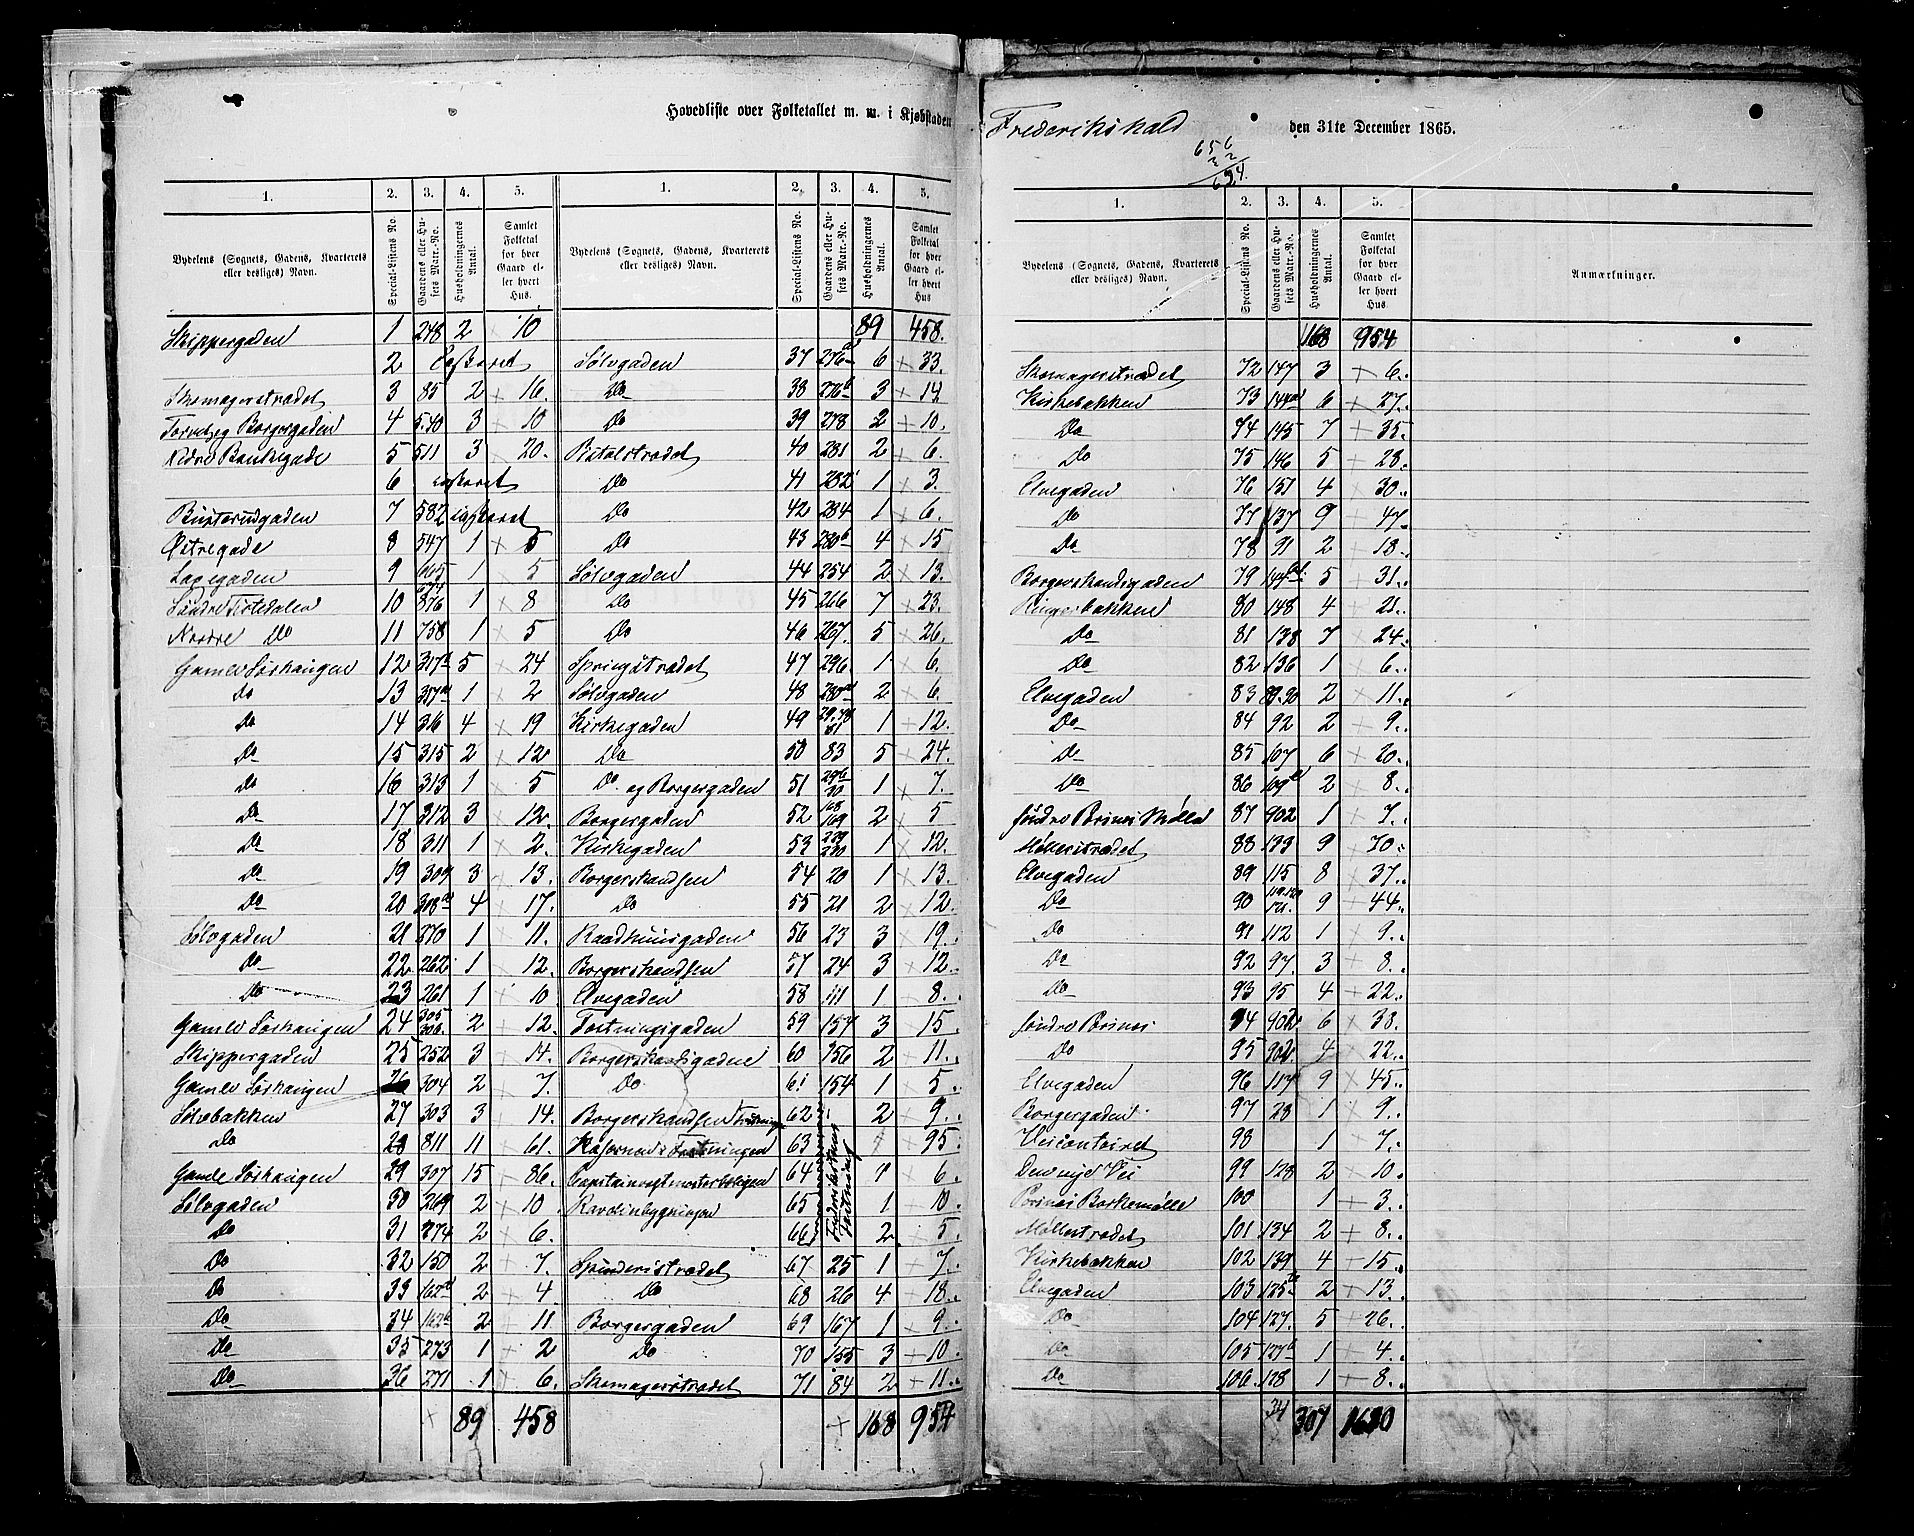 Hovedliste over Folketallet m. m. i Kjøbstaden
1. 2. 3. 4. 5. 1. 2. 3. 4. 5.
Bydelens (Sognets, Gadens, Kvarterets eller desliges) Navn. Special-Listens No. Gaardens eller Husets Matr.-No. Husholdningernes Antal. Samlet Folketal for hver Gaard eller hvert Hus. Bydelens (Sognets, Gadens, Kvarterets eller desliges) Navn. Special-Listens No. Gaardens eller Husets Matr.-No. Husholdningernes Antal. Samlet Folketal for hver Gaard eller hvert Hus
Skippergaden 1 248 2 10 89 458.
2 Sølvgaden 37 276 6 33.
Skomagerstrædet 3 85 2 16. Do 38 276b 3 14
4 540 3 10 Do 39 278 2 10.
Nedre Bankegade 5 511 3 20. 40 281 2 6.
6 Do 41 282 1 3.
Busterudgaden 7 582 Do 42 284 1 6.
Østregade 8 547 1 5 Do 43 280b 4 15
9 1 5 Sølvgaden 44 254 2 13.
Søndre Tistedalen 10 876 1 8 Do 45 266 7 23.
Nordre Do 11 758 1 5 Do 46 267. 5 26.
12 317 5 24 47 296. 1 6.
Do 13 317 1 2 Sølvgaden 48 280 2 6.
Do 14 316 4 19 Kirkegaden 49 1 12.
Do 15 315 2 12 Do 50 83 5 24.
Do 16 313 1 5 Do og Borgergaden 51 1 7.
Do 17 312 3 12. Borgergaden 52 168 169 2 5
Do 18 311 1 2. Kirkegaden 53 1 12.
Do 19 309 3 13. 54 20 1 13.
Do 20 308 4 17. Do 55 21 2 12.
Sølvgaden 21 270 1 11. Raadhuusgaden 56 23 3 19.
Do 22 262 1 12. 57 24 3 12.
Do 23 261 1 10. Elvegaden 58 111 1 8.
24 305 306 2 12. Fæstningsgaden 59 157 3 15.
Skippergaden 25 252 3 14. 60 156 2 11.
26 304 2 7. Do 61 154 1 5.
27 303 3 14. 62 2 9.
Do 28 811 11 61. 63 95.
29 307 15 86. 64 1 6.
Sølvgaden 30 269 2 10 Ravelinbygningen 65 1 10.
Do 31 274 2 6. 66 2 5
Do 32 150 2 7. 67 25 1 7.
Do 33 162a 2 4 Do 68 26 4 18.
Do 34 162b 2 11 Borgergaden 69 167 1 9.
Do 35 273 1 2 Do 70 155 3 10.
Do 36 271 1 6. Skomagerstrædet 71 84 2 11.
89 458 168 954
Frederikshald den 31te December 1865.
656
2
1. 2. 3. 4. 5.
Bydelens (Sognets, Gadens, Kvarterets eller desliges) Navn. Special-Listens No. Gaardens eller Husets Matr.-No. Husholdningernes Antal. Samlet Folketal for hver Gaard eller hvert Hus. Anmærkninger.
168 954
Skomagerstrædet 72 147 3 6.
Kirkebakken 73 144 6 27.
Do 74 145 7 35.
Do 75 146 5 28.
Elvegaden 76 151 4 30.
Do 77 137 9 47
Do 78 91 2 18.
79 144 5 31.
80 148 4 21.
Do 81 138 7 24.
Do 82 136 1 6.
Elvegaden 83 89.90 2 11.
Do 84 92 2 9.
Do 85 107 6 20.
Do 86 109 2 8.
87 902 1 7.
Møllerstrædet 88 133 9 70.
Elvegaden 89 115 8 37.
Do 90 9 44.
Do 91 112 1 9.
Do 92 97. 3 8.
Do 93 95 4 22.
94 902 6 38.
Do 95 902. 4 22.
Elvegaden 96 117 9 45.
Borgergaden 97 28 1 9.
98 1 7.
Den nye Vei 99 128 2 10.
100 1 3.
101 134 2 8.
Kirkebakken 102 139 4 15.
Elvegaden 103 125 2 13.
Do 104 127. 5 26.
Do 105 127b 1 4.
Do 106. 128 1 8.
34 307 1620